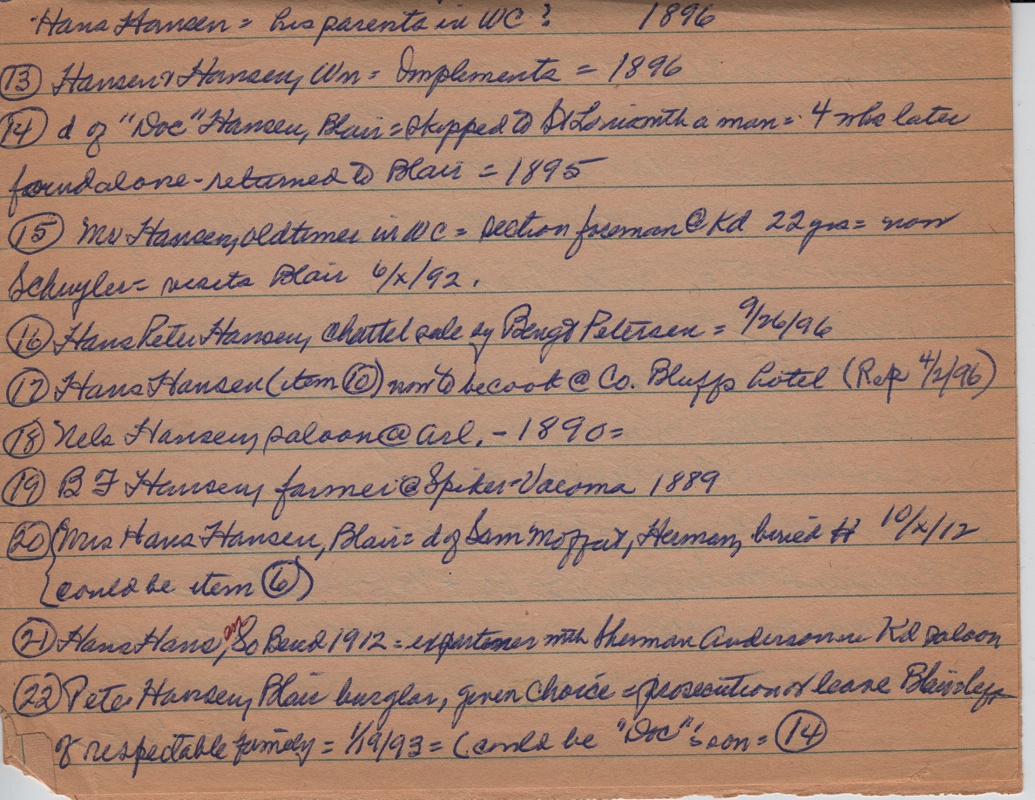 Hans Hansen = his parents in WC ? 1896
(13) Hansen & Hansen, Wm = Implements = 1896
(14) d of "Doc" Hansen, Blair = skipped to St Louis with a man = 4 wks later
found alone - returned to Blair = 1895
(15) Mr Hansen, oldtimer in WC = section foreman @ Kd 22 yrs = now
Schuyler = visits Blair 6/x/92.
(16) Hans Peter Hansen, chattel sale by Bengt Petersen = 9/26/96
(17) Hans Hansen (item (10)) now to be cook @ Co. Bluffs hotel (Rep 4/2/96)
(18) Nels Hansen, saloon @ Arl. - 1890 =
(19) B F Hansen, farmer @ Spiker-Vacoma 1889
(20) Mrs Hans Hansen, Blair = d of Sam Moffat, Herman, buried H 10/x/12
(could be item (6))
(21) Hans Hansen, So Bend 1912 = expartner with Sherman Anderson in Kd saloon
(22) Pete Hansen, Blair burglar, given choice = prosecution or leave Blair = left
of respectable family = 1/19/93 = (could be "Doc"'s son = (14)